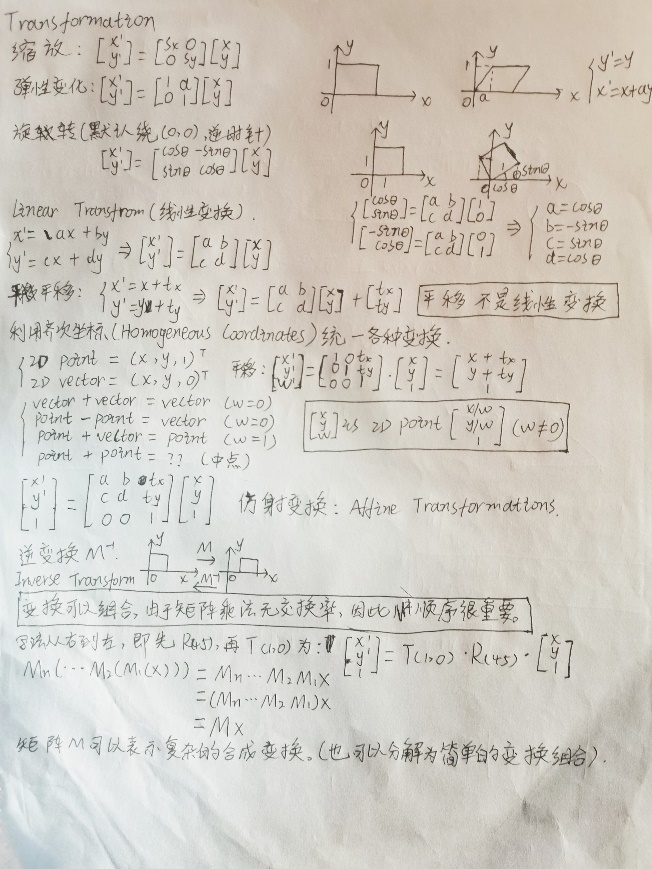 Transformation
缩放: [x' y'] = [Sx 0; 0 Sy][x y]
弹性变化: [x' y'] = [1 a; 0 1][x y]
y 1 0 x
y 1 0 a x
{ y'=y
x'=x+ay
旋转(默认绕(0,0),逆时针)
[x' y'] = [cosθ -sinθ; sinθ cosθ][x y]
y 1 0 1 x
y θ sinθ 0 cosθ x
[cosθ sinθ] = [a b; c d][1 0]
[-sinθ cosθ] = [a b; c d][0 1]
⇒ { a=cosθ
b=-sinθ
c=sinθ
d=cosθ
Linear Transfrom(线性变换).
{ x'= ax+by
y'=cx+dy ⇒ [x' y'] = [a b; c d][x y]
平移: { x'=x+tx
y'=y+ty ⇒ [x' y'] = [a b; c d][x y] + [tx ty]
平移不是线性变换
利用齐次坐标(Homogeneous Coordinates)统一各种变换.
{ 2D point = (x,y,1)ᵀ
2D vector = (x,y,0)ᵀ
平移: [x' y' w'] = [1 0 tx; 0 1 ty; 0 0 1]·[x y 1] = [x+tx y+ty 1]
{ vector + vector = vector (w=0)
point - point = vector (w=0)
point + vector = point (w=1)
point + point = ?? (中点)
[x y w] is 2D point [x/w y/w 1] (w≠0)
[x' y' 1] = [a b tx; c d ty; 0 0 1][x y 1]
仿射变换: Affine Transformations.
逆变换 M⁻¹.
Inverse Transform
y 0 x M M⁻¹ y 0 x
变换可以组合,由于矩阵乘法无交换率,因此顺序很重要。
写法从右到左,即先R(45),再T(1,0)为: [x' y' 1] = T(1,0)·R(45)·[x y 1]
Mn(⋯M2(M1(X))) = Mn⋯M2M1X
=(Mn⋯M2M1)X
=MX
矩阵M可以表示复杂的合成变换。(也可以分解为简单的变换组合).